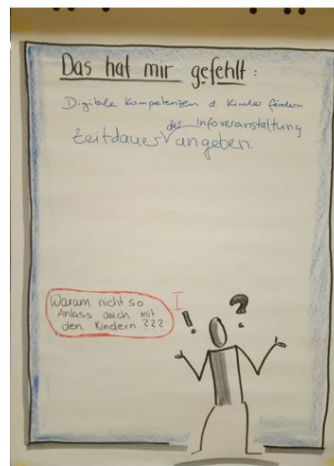 Das hat mir gefehlt:
Digitale Kompetenzen d. Kinder fördern
der Infoveranstaltung
Zeitdauer angeben.
Warum nicht so
Anlass auch mit
den Kindern ???
! ?